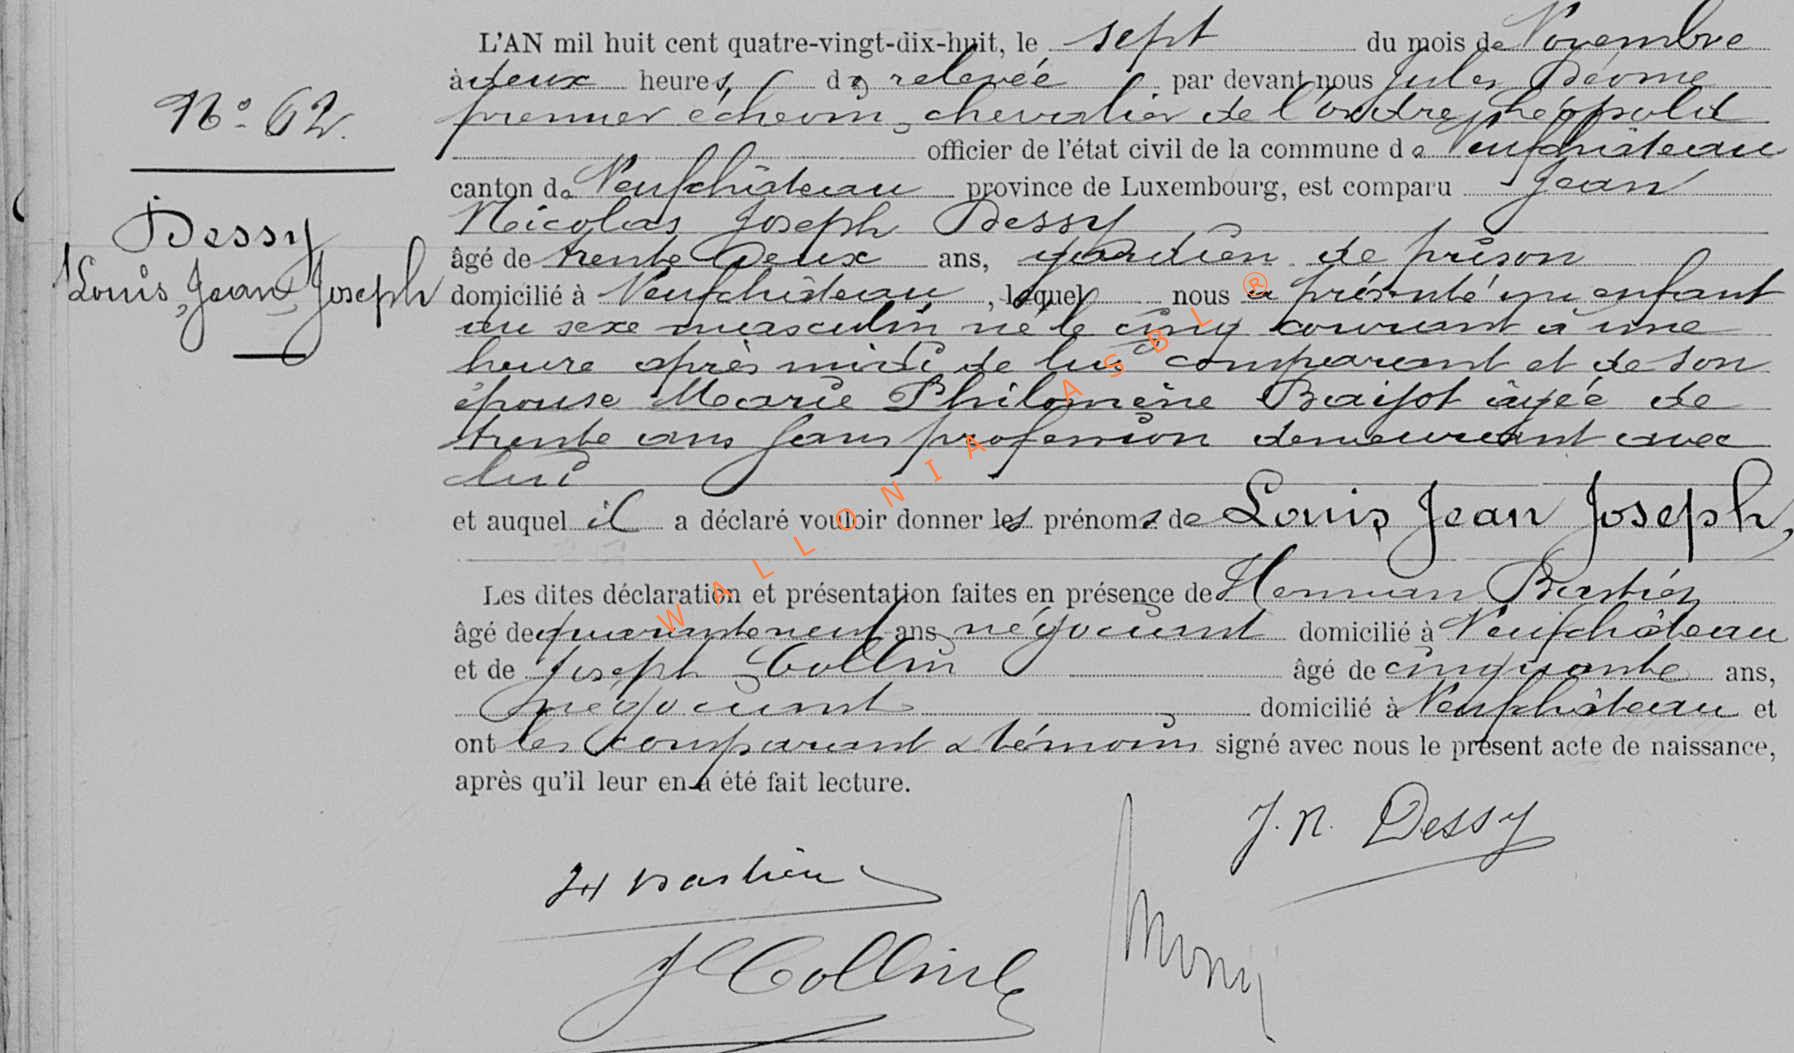 L'AN mil huit cent quatre-vingt-dix-huit, le sept du mois de Novembre
à deux heures de relevée par devant nous Jules
premier échevin, chevalier de l'ordre Léopold
officier de l'état civil de la commune de Neufchâteau
canton de Neufchâteau province de Luxembourg, est comparu Jean
Nicolas Joseph Dessy
âgé de trente deux ans, gardien de prison
domicilié à Neufchâteau, lequel nous a présenté un enfant
du sexe masculin né le cinq courant à une
heure après midi de lui comparant et de son
épouse Marie Philomène Baijot âgée de
trente ans sans profession demeurant avec
lui
et auquel il a déclaré vouloir donner les prénoms de Louis Jean Joseph,
Les dites déclaration et présentation faites en présence de Herman Bastien
âgé de quarante neuf ans négociant domicilié à Neufchâteau
et de Joseph Collin âgé de cinquante ans,
négociant domicilié à Neufchâteau et
ont les comparant & témoins signé avec nous le présent acte de naissance,
après qu'il leur en a été fait lecture.
No 62.
Dessy
Louis, Jean, Joseph
J. N. Dessy
H Bastien
J Collin
WALLONIA ASBL ®